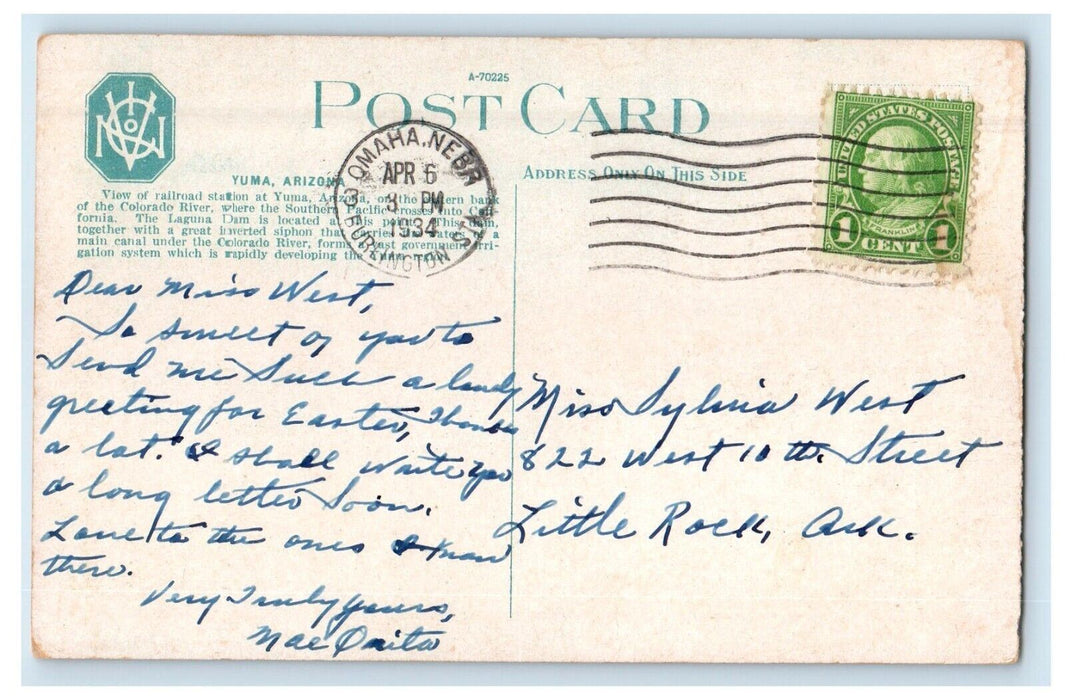 A-70225
POST CARD
ADDRESS ONLY ON THIS SIDE
YUMA, ARIZONA
View of railroad station at Yuma, Arizona, on the eastern bank
of the Colorado River, where the Southern Pacific crosses into Cali-
fornia. The Laguna Dam is located at this point. This dam,
together with a great inverted siphon that carries the waters of a
main canal under the Colorado River, forms a vast government irri-
gation system which is rapidly developing the Yuma
OMAHA, NEBR.
APR 6
3 PM
1934
BURLINGTON STA.
UNITED STATES POSTAGE
FRANKLIN
1 CENT 1
Dear Miss West,
So sweet of you to
Send me Such a lovely
greeting for Easter, Thanks
a lot. I shall write you
a long letter Soon.
Love to the ones I know
there.
Very Truly yours,
Mae Onita
Miss Sylvia West
822 West 10 th. Street
Little Rock, Ark.